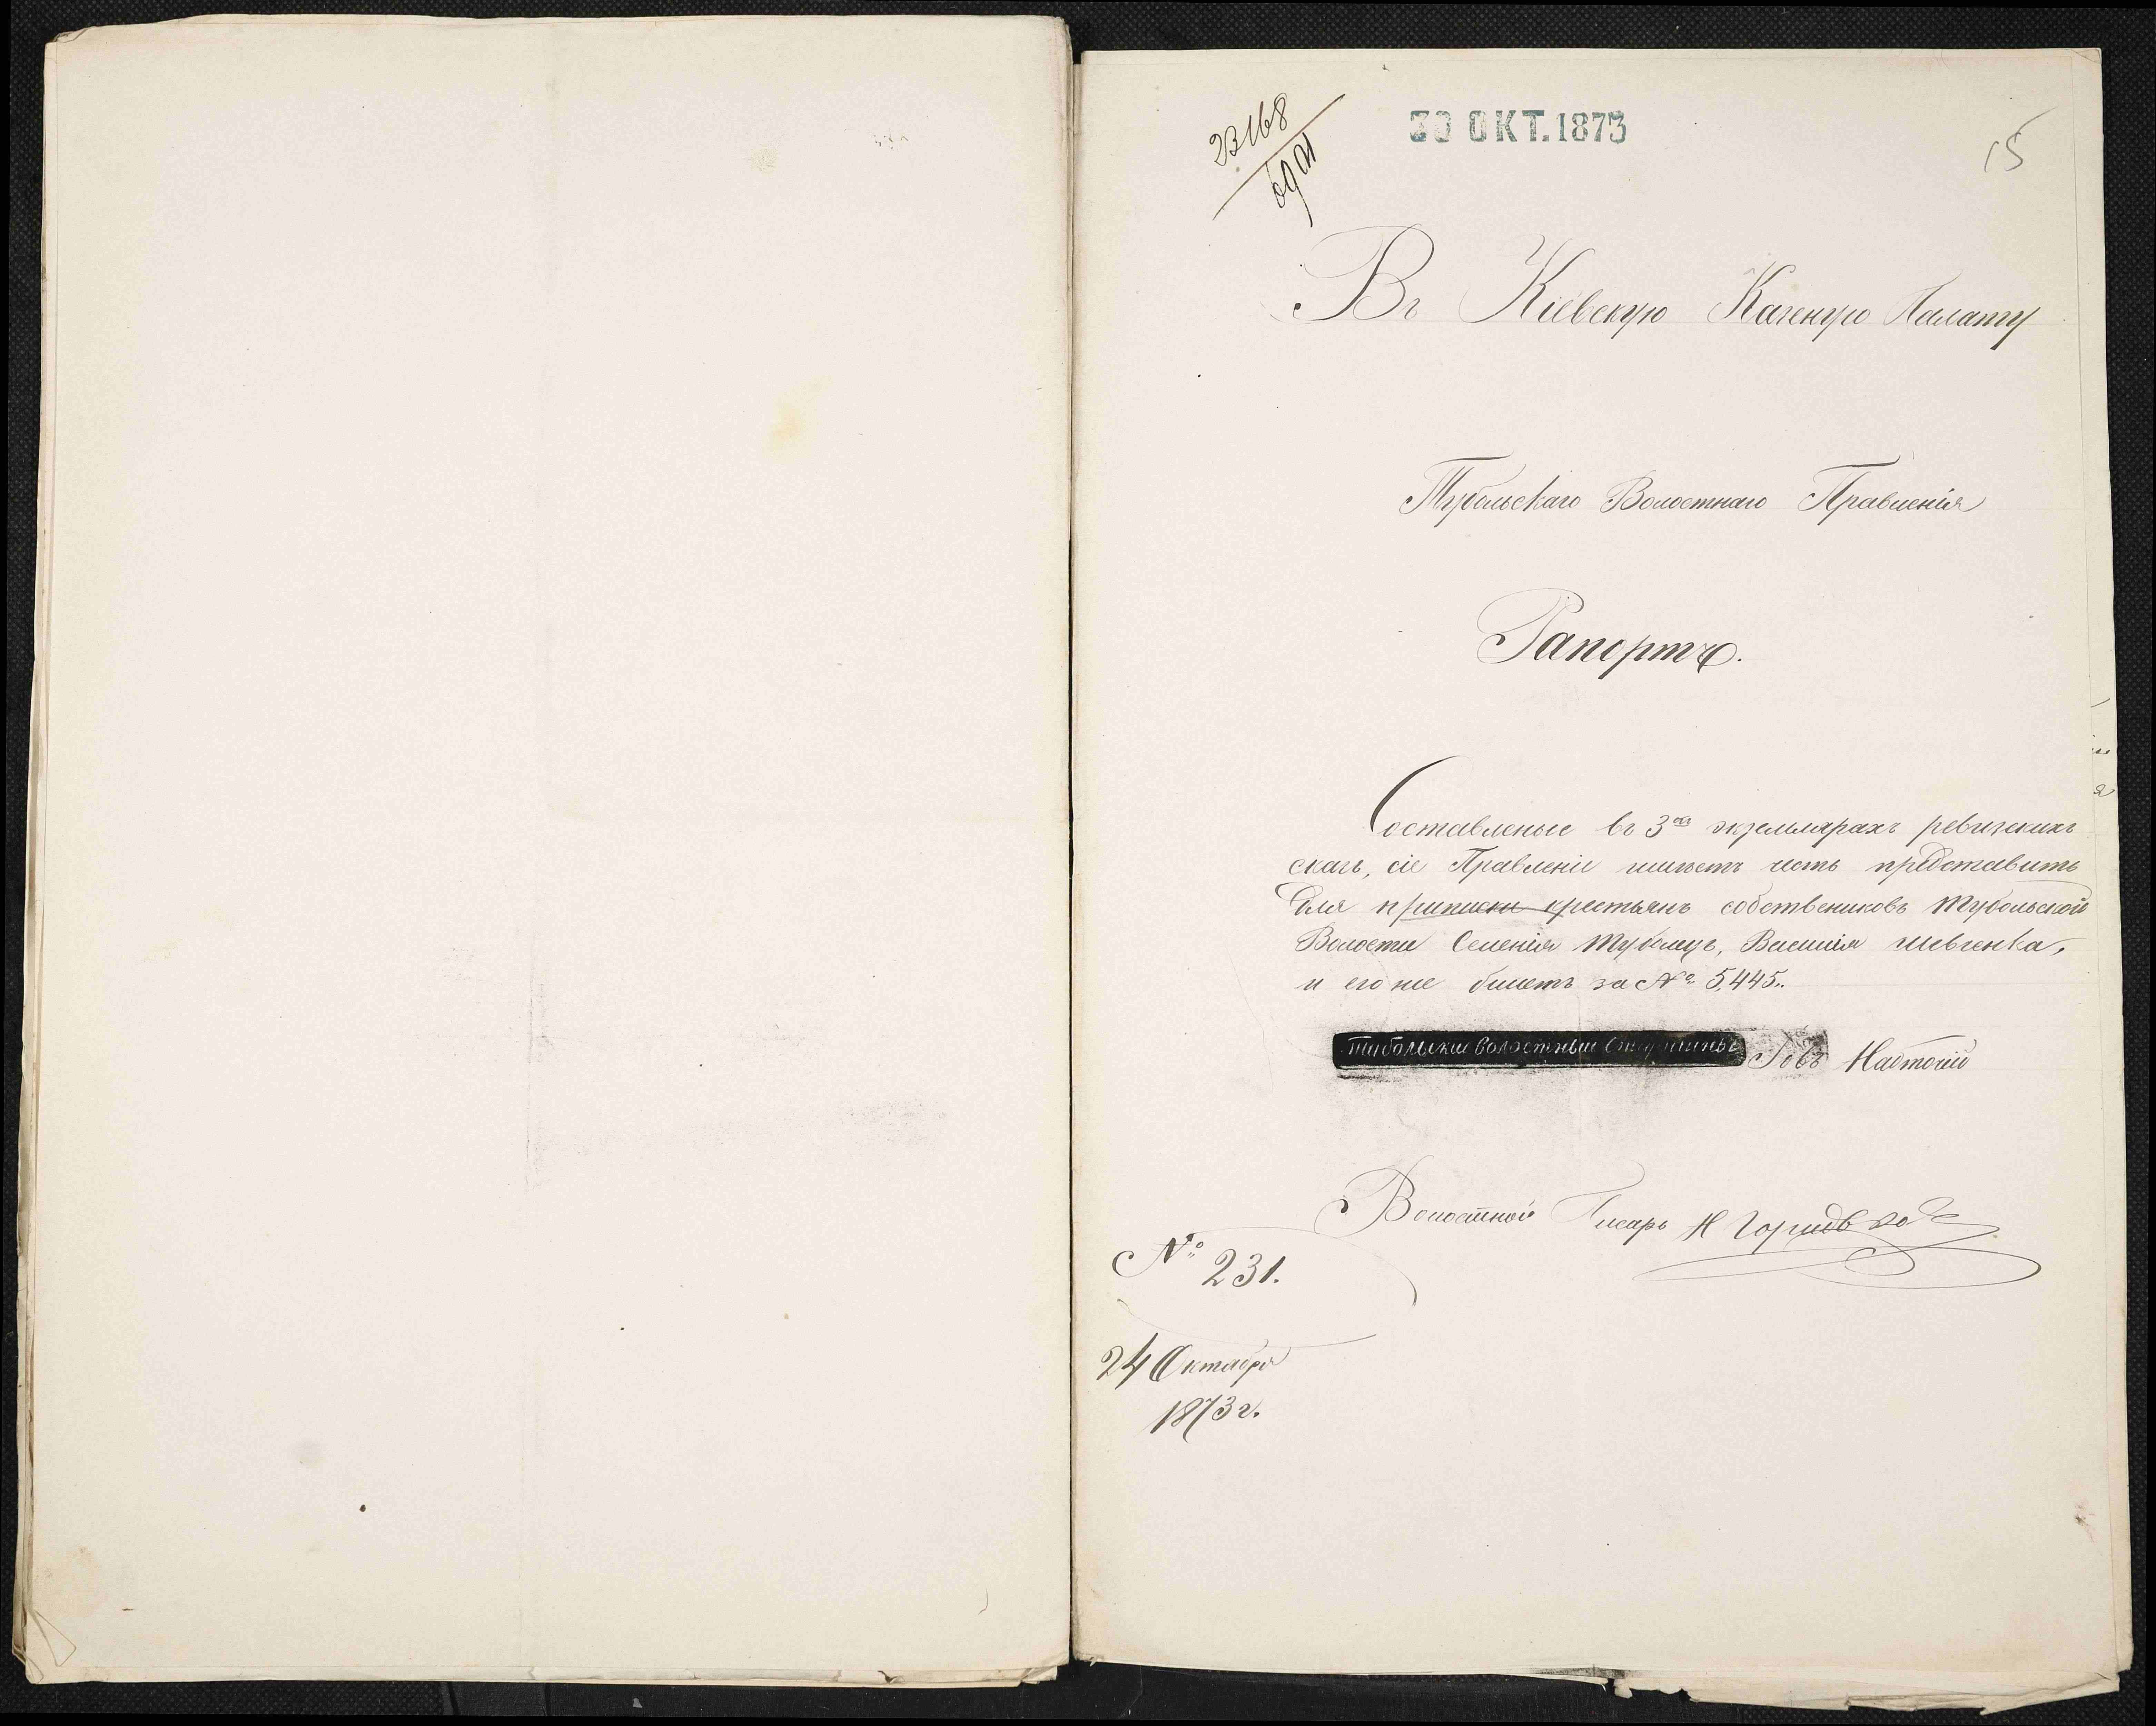 23168
30 ОКТ. 1873
15
Въ Кіевскую Казенную Палату
Тубольскаго Волостнаго Правленія
Рапортъ.
Составленые въ 3хъ экземлярахъ ревизскихъ
сказъ, сіе Правленіе имѣетъ честь представить
для приписки крестьянъ собствениковъ Тубольской
Волости Селенія Туболецъ, Василія Шевченка,
и его же билетъ за № 5,445.
Тубольскій Волостный Старшина Іовъ Надточій
Волостной Писарь Н
№ 231.
24 Октября
1873 г.